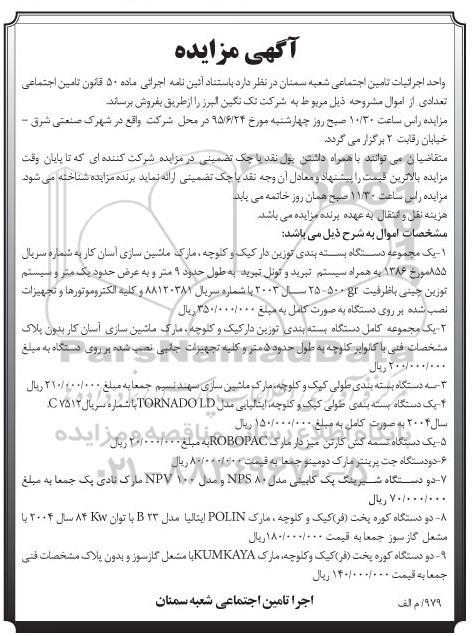 آگهی مزایده
واحد اجرائیات تامین اجتماعی شعبه سمنان در نظر دارد باستناد آئین نامه اجرائی ماده ۵۰ قانون تامین اجتماعی
تعدادی از اموال مشروحه ذیل مربوط به شرکت تک نگین البرز را ازطریق بفروش برساند.
مزایده راس ساعت ۱۰/۳۰ صبح روز چهارشنبه مورخ ۹۵/۶/۲۴ در محل شرکت واقع در شهرک صنعتی شرق –
خیابان رقابت ۲ برگزار می گردد.
متقاضیان می توانند با همراه داشتن پول نقد یا چک تضمینی در مزایده شرکت کننده ای که تا پایان وقت
مزایده بالاترین قیمت را پیشنهاد و معادل آن وجه نقد یا چک تضمینی ارائه نماید برنده مزایده شناخته می شود.
مزایده راس ۱۱/۳۰ صبح همان روز خاتمه می یابد.
هزینه نقل و انتقال به عهده برنده مزایده می باشد.
مشخصات اموال به شرح ذیل می باشد:
۱-یک مجموعه دستگاه بسته بندی توزین دار کیک و کلوچه ، مارک ماشین سازی آسان کار به شماره سریال
۸۵۵مورخ ۱۳۸۶ به همراه سیستم تبرید و تونل تبرید به طول حدود ۹ متر و به عرض حدود یک متر و سیستم
توزین چینی باظرفیت ۲۵-۵۰۰ gr سال ۲۰۰۳ با شماره سریال ۸۸۱۲۰۳۸۱ و کلیه الکتروموتورها و تجهیزات
نصب شده بر روی دستگاه به صورت کامل به مبلغ ۳۵۰/۰۰۰/۰۰۰ ریال
۲-یک مجموعه کامل دستگاه بسته بندی توزین دارکیک و کلوچه ، مارک ماشین سازی آسان کار بدون پلاک
مشخصات فنی با کانوایر کلوچه به طول حدود ۵ متر و کلیه تجهیزات جانبی نصب شده بر روی دستگاه به مبلغ
۲۰۰/۰۰۰/۰۰۰ ریال
۳-سه دستگاه بسته بندی طولی کیک و کلوچه، مارک ماشین سازی سهند نسیم جمعا به مبلغ ۲۱۰/۰۰۰/۰۰۰ ریال
۴-یک دستگاه بسته بندی طولی کیک و کلوچه، ایتالیایی مدل TORNADO LD با شماره سریال C. ۷۵۱۲
سال۲۰۰۴ به صورت کامل به مبلغ ۱۵۰/۰۰۰/۰۰۰ ریال
۵-یک دستگاه تسمه کش کارتن میز دار مارک ROBOPACبه مبلغ ۲۰/۰۰۰/۰۰۰ ریال
۶-دودستگاه جت پرینتر مارک دومینو جمعا به قیمت ۸۰/۰۰۰/۰۰۰ ریال
۷-دو دستگاه شیرینگ پک کابینی مدل NPS ۸۰ و مدل NPV ۱۰۰ مارک نادی پک جمعا به مبلغ
۷۰/۰۰۰/۰۰۰ ریال
۸-دو دستگاه کوره پخت (فر)کیک و کلوچه ، مارک POLIN ایتالیا مدل B ۲۳ با توان ۸۴ Kw سال ۲۰۰۴ با
مشعل گاز سوز جمعا به قیمت ۱۸۰/۰۰۰/۰۰۰ریال
۹-دو دستگاه کوره پخت (فر)کیک وکلوچه، مارک KUMKAYAبا مشعل گازسوز و بدون پلاک مشخصات فنی
جمعا به قیمت ۱۴۰/۰۰۰/۰۰۰ ریال
اجرا تامین اجتماعی شعبه سمنان
۹۷۹/ م الف